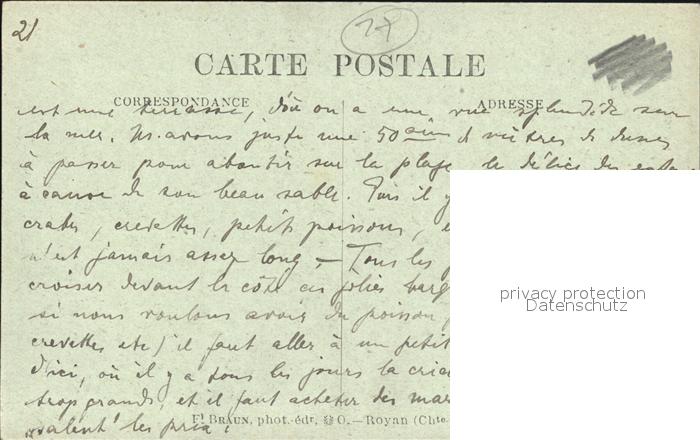 21
27
CARTE POSTALE
CORRESPONDANCE
ADRESSE
est une terrasse, d'où on a une vue splendide sur
la mer. Ns avons juste une 50aine de mètres de dunes
à passer pour aboutir sur la plage, le délice des enfants
à cause de son beau sable. Puis il y
crabes, crevettes, petits poissons,
n'est jamais assez long, — Tous les
croiser devant la côte ces jolies barq
si nous voulons avoir du poisson
crevettes etc) il faut aller à un petit
d'ici, où il y a tous les jours la criée
trop grands, et il faut acheter des mar
valent les prix.
Fd BRAUN, phot.-édr, O.—Royan (Chte.
privacy protection
Datenschutz